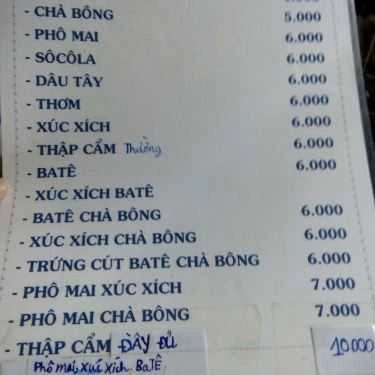 - CHÀ BÔNG 5.000
- PHÔ MAI 6.000
- SÔCÔLA 6.000
- DÂU TÂY 6.000
- THƠM 6.000
- XÚC XÍCH 6.000
- THẬP CẨM Thường 6.000
- BATÊ 6.000
- XÚC XÍCH BATÊ
- BATÊ CHÀ BÔNG 6.000
- XÚC XÍCH CHÀ BÔNG 6.000
- TRỨNG CÚT BATÊ CHÀ BÔNG 6.000
- PHÔ MAI XÚC XÍCH 7.000
- PHÔ MAI CHÀ BÔNG 7.000
- THẬP CẨM ĐẦY ĐỦ 10.000
Phô mai, xúc xích. BaTÊ